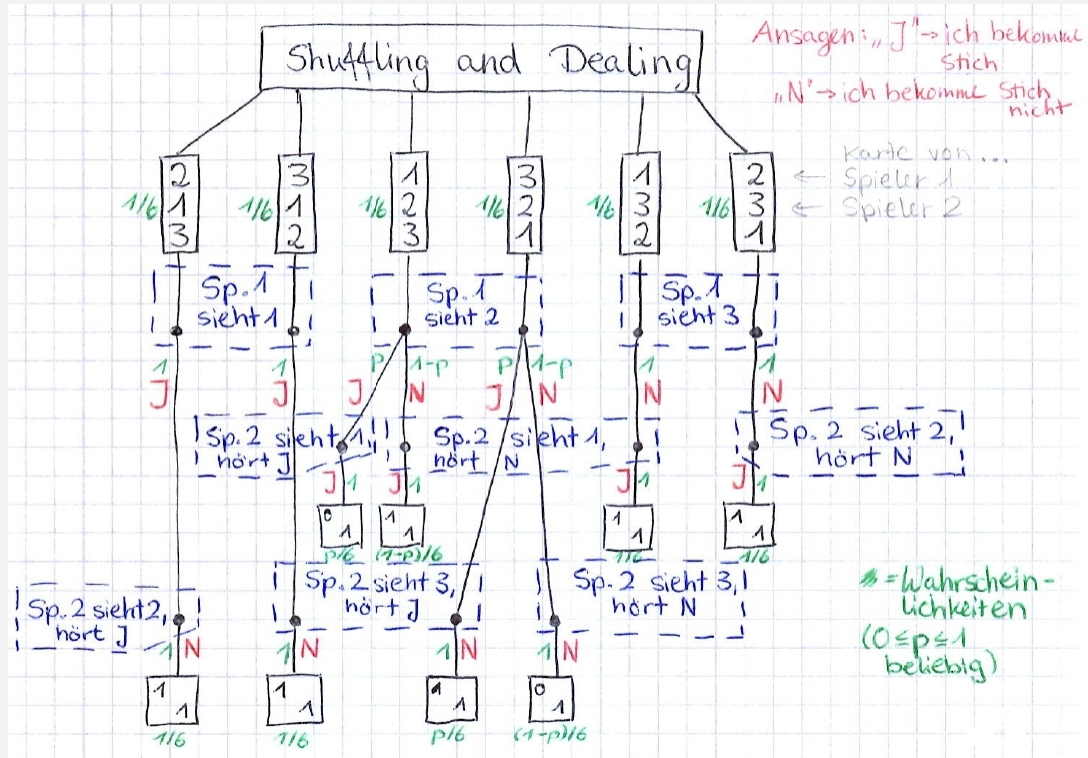 Shuffling and Dealing
Ansagen: „J"→ich bekomme
Stich
„N"→ich bekomme Stich
nicht
Karte von...
← Spieler 1
← Spieler 2
1/6 2 1 3
1/6 3 1 2
1/6 1 2 3
1/6 3 2 1
1/6 1 3 2
1/6 2 3 1
Sp. 1
sieht 1
Sp. 1
sieht 2
Sp. 1
sieht 3
1 1 p 1-p p 1-p 1 1
J J J N J N N N
Sp. 2 sieht 1,
hört J
Sp. 2 sieht 1,
hört N
Sp. 2 sieht 2,
hört N
J 1 J 1 J 1 J 1
0 1 1 1 1 1 1 1
p/6 (1-p)/6 1/6 1/6
Sp. 2 sieht 2,
hört J
Sp. 2 sieht 3,
hört J
Sp. 2 sieht 3,
hört N
1 N 1 N 1 N 1 N
1 1 1 1 1 1 0 1
1/6 1/6 p/6 (1-p)/6
=Wahrschein-
lichkeiten
(0≤p≤1
beliebig)